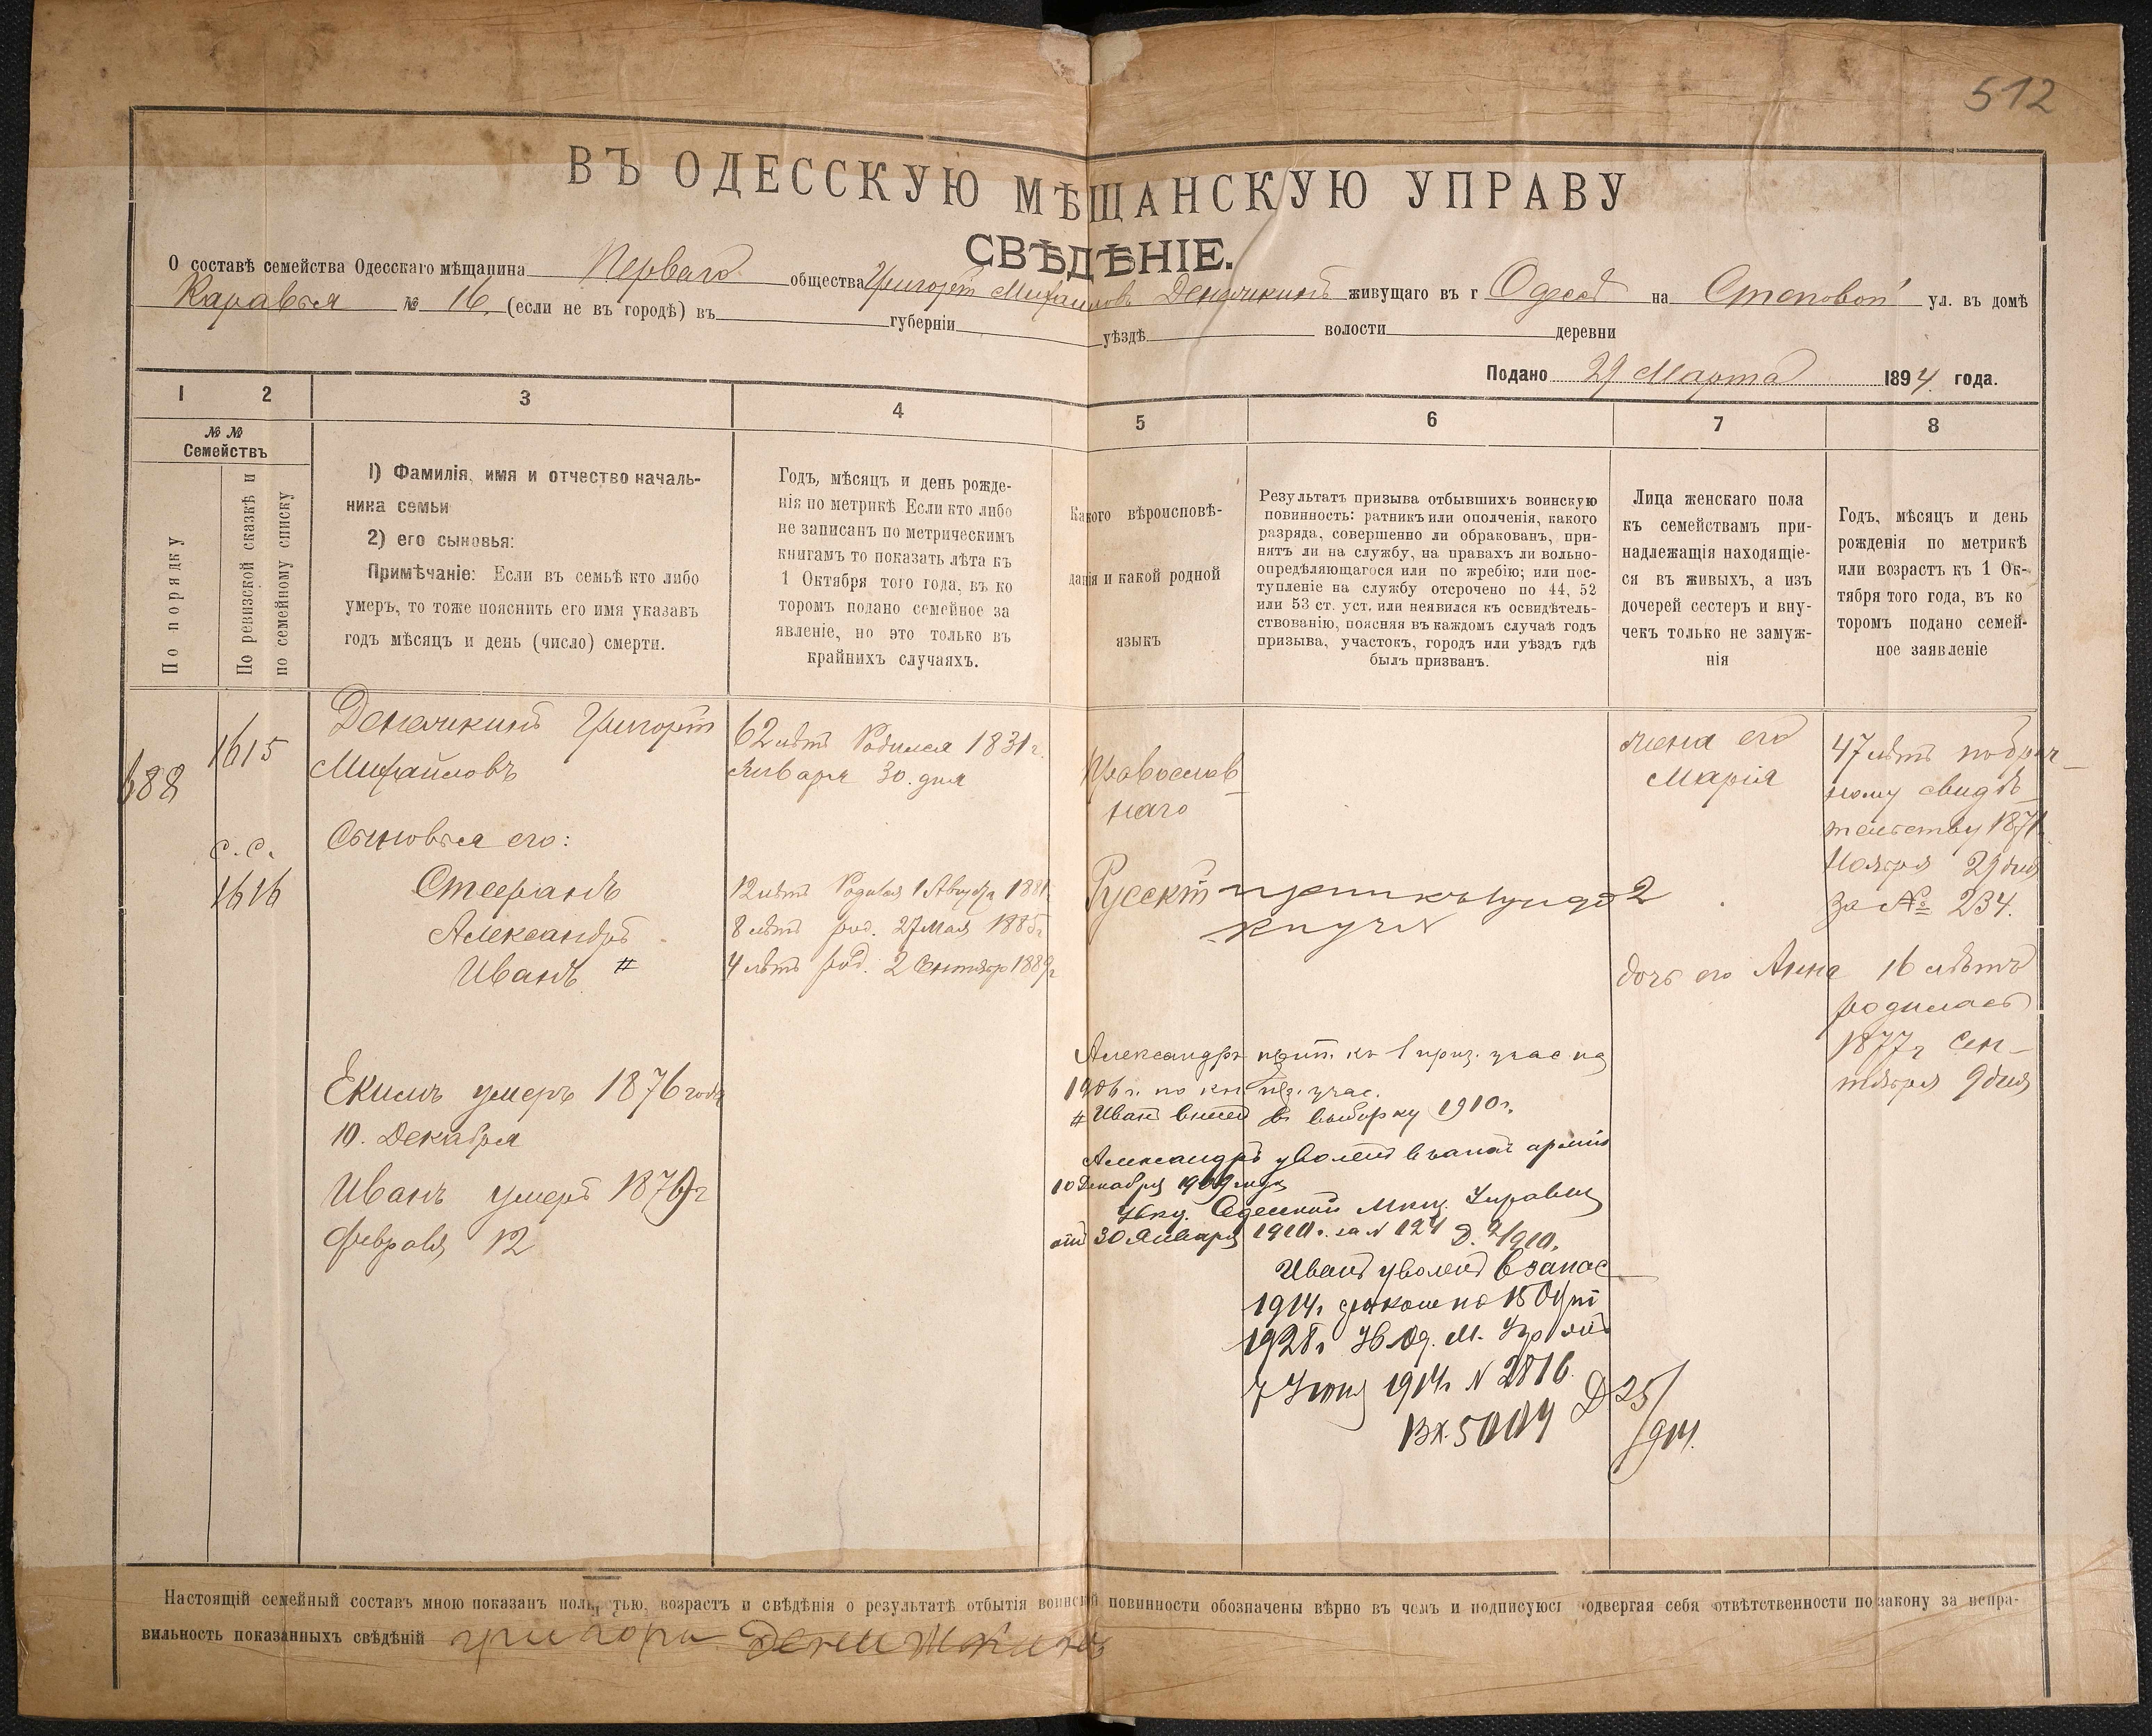 512
ВЪ ОДЕССКУЮ МѢЩАНСКУЮ УПРАВУ
СВѢДѢНІЕ.
О составѣ семейства Одесскаго мѣщанина Перваго общества Григорій Михайловъ Денежкинъ живущаго въ г Одессѣ на Степовой ул. въ домѣ
№ 16. (если не въ городѣ) въ губерніи уѣздѣ волости деревни
Подано 29 Марта 1894 года.
1 2 3 4 5 6 7 8
№ №
Семействъ
По порядку
По ревизской сказкѣ и
по семейному списку
1) Фамилія, имя и отчество началь-
ника семьи
2) его сыновья:
Примѣчаніе: Если въ семьѣ кто либо
умеръ, то тоже пояснить его имя указавъ
годъ мѣсяцъ и день (число) смерти.
Годъ, мѣсяцъ и день рожде-
нія по метрикѣ Если кто либо
не записанъ по метрическимъ
книгамъ то показать лѣта къ
1 Октября того года, въ ко
торомъ подано семейное за
явленіе, но это только въ
крайнихъ случаяхъ.
Какого вѣроисповѣ-
данія и какой родной
языкъ
Результатъ призыва отбывшихъ воинскую
повинность: ратникъ или ополченія, какого
разряда, совершенно ли обракованъ, при-
нятъ ли на службу, на правахъ ли вольно-
опредѣляющагося или по жребію; или пос-
тупленіе на службу отсрочено по 44, 52
или 53 ст. уст. или неявился къ освидѣтель-
ствованію, поясняя въ каждомъ случаѣ годъ
призыва, участокъ, городъ или уѣздъ гдѣ
былъ призванъ.
Лица женскаго пола
къ семействамъ при-
надлежащія находящіе-
ся въ живыхъ, а изъ
дочерей сестеръ и вну-
чекъ только не замуж-
нія
Годъ, мѣсяцъ и день
рожденія по метрикѣ
или возрастъ къ 1 Ок-
тября того года, въ ко
торомъ подано семей-
ное заявленіе
688
1615
с.с.
1616
Денежкинъ Григорій
Михайловъ
Сыновья его:
Стефанъ
Александръ
Иванъ #
Екимъ умеръ 1876 года
10. Декабря
Иванъ умеръ 1879 г
Февраля 12
62 лѣтъ Родился 1831 г.
Января 30. дня
12 лѣтъ Родился 1 Августа 1881
8 лѣтъ род. 27 Мая 1885 г
4 лѣтъ род. 2 Сентябр 1889 г
Православ
наго
Русскій
2
Александръ прип. къ 1 приз. учас. на
1906 г. по учас.
# Иванъ внесен в выборку 1910 г.
Александръ уволенъ в запас арміи
10 Декабря 1909 года
Одесской Мѣщ. Управы
отъ 30 Января 1910 г. за N 124 Д. 2/1910.
Иванъ уволенъ в запас
1914 г.
1928 г Од. М. Упр
1914 г N 2816.
Вх. 5004 Д 25/914.
жена его
Марія
дочь его Анна
47 лѣтъ по брач-
ному свидѣ-
тельству 1871
Ноября 29 дня
за № 234.
16 лѣтъ
родилась
1877 г Сен-
тября 9 дня
Настоящій семейный составъ мною показанъ полностью, возрастъ и свѣдѣнія о результатѣ отбытія воинской повинности обозначены вѣрно въ чемъ и подписуюсь подвергая себя отвѣтственности по закону за непра-
вильность показанныхъ свѣдѣній григори Денижкинъ